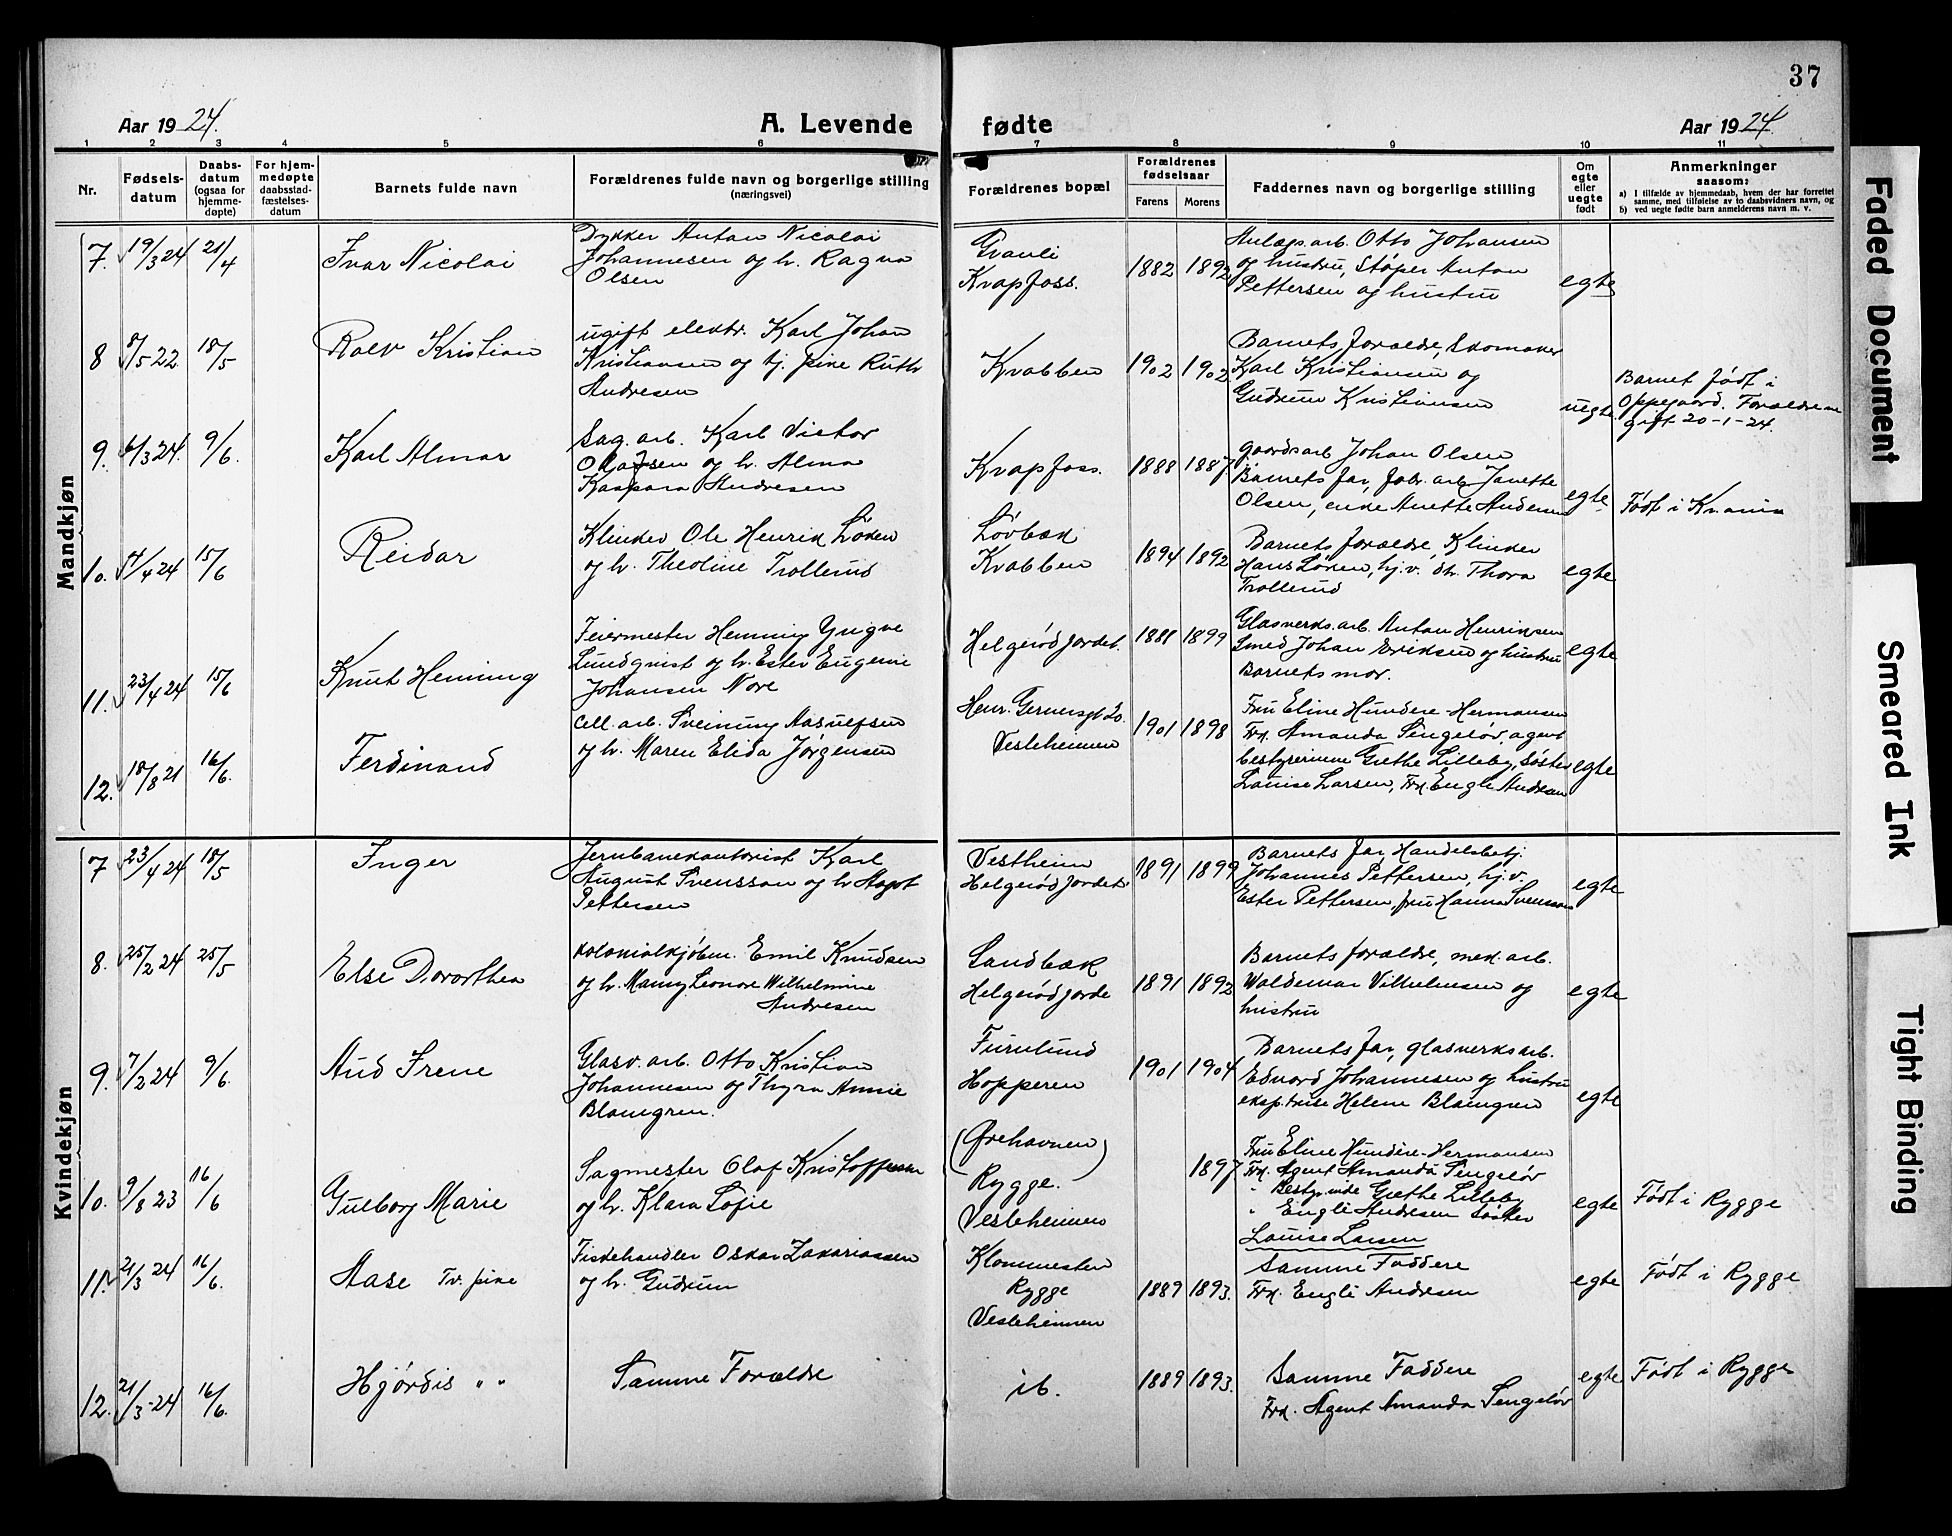 37
Aar 1924.
A. Levende
fødte
Aar 1924.
1 2 3 4 5 6 7 8 9 10 11
Nr.
Fødselsdatum
Daabsdatum (ogsaa for hjemmedøpte)
For hjemmedøpte daabsstadfæstelsesdatum
Barnets fulde navn
Forældrenes fulde navn og borgerlige stilling (næringsvei)
Forældrenes bopæl
Forældrenes fødselsaar
Farens
Morens
Faddernes navn og borgerlige stilling
Om egte eller uegte født
Anmerkninger saasom:
a) I tilfælde av hjemmedaab, hvem der har forrettet samme, med tilføielse av to daabsvidners navn, og
b) ved uegte fødte barn anmelderens navn m. v.
Mandkjøn
7. 19/3 24 21/4 Ivar Nicolai
Dykker Anton Nicolai
Johannesen og h. Ragna
Olsen
Granli
Krapfoss.
1882 1892
Anlægsarb. Otto Johansen
og hustru, Støper Anton
Pettersen og hustru
egte
8 8/5 22 18/5 Rolv Kristian
ugift elektr. Karl Johan
Kristiansen og tj. pike Ruth
Andresen
Krabben
1902 1902
Barnets forældre, Skomaker
Karl Kristiansen og
Gudrun Kristiansen
uegte
Barnet født i
Oppegaard. Forældrene
gift 20-1-24.
9. 6/3 24. 9/6. Karl Almar
Sag. arb. Karl Victor
Olafsen og h. Alma
Kaspara Andresen
Krapfoss.
1888 1887.
gaardsarb Johan Olsen
Barnets far, fabr. arb. Janette
Olsen, enke Anette Andersen
egte
Født i
10. 4/4 24 15/6 Reidar
Klinker Ole Henrik Løken
og h. Theoline Trollerud
Løvbak
Krabben
1894 1892
Barnets forældre, Klinker
Hans Løken, hj.v. str. Thora
Trollerud
egte
11. 23/4 24 15/6 Knut Henning
Feiermester Henning Yngve
Lundqvist og h. Ester Eugenie
Johansen Nore
Helgerødjordet.
1881 1899
Glasverks.arb. Anton Henriksen
Smed Johan Eriksen og hustru
Barnets mor.
egte
12. 18/8 21 16/6. Ferdinand
Cell. arb. Sveinung Aasulfsen
og h. Maren Elida Jørgensen
Henr. Gernersgt 20.
Vesleheimen
1901 1898
Fru Eline Hundere-Hermansen
Frk. Amanda Sengeløv, agent
bestyrerinne Grethe Lilleby, Søster
Louise Larsen, Frk. Engli Andresen
egte
Kvindekjøn
7 23/4 24 18/5 Inger
Jernbanekontorist Karl
August Svensson og h. Hagot
Pettersen
Vestheim
Helgerødjordet.
1891 1899
Barnets far, Handelsbetj.
Johannes Pettersen, hj.v.
Ester Pettersen, fru Hanna Svensson
egte
8. 25/2 24 25/5 Else Dororthea
Kolonialkjøbm. Emil Knudsen
og h. Manny Leonore Wilhelmine
Andresen
Sandbæk
Helgerødjorde
1891 1892
Barnets forældre, mek. arb.
Waldemar Vilhelmsen og
hustru
egte
9. 7/2 24 9/6. Aud Irene
Glasv. arb. Otto Kristian
Johannesen og Thyra Annie
Blomgren.
Furulund
Hopperen
1901 1904
Barnets far, glasverksarb.
Edvard Johannesen og hustru
eksp.trise Helene Blomgren
egte
10. 9/8 23 16/6 Gulborg Marie
Sagmester Olaf Kristoffersen
og h. Klara Sofie
(Ørehavnen)
Rygge.
Vesleheimen
1897
Fru Eline Hundere-Hermansen
Frk. Agent Amanda Sengeløv
" Bestyrinde Grethe Lilleby
" Engli Andresen Søster
Louise Larsen
egte
Født i Rygge
11. 21/3 24 16/6. Aase Tv. pike
Fiskehandler Oskar Zakariassen
og h. Gudrun
Klommesten
Rygge
Vesleheimen
1889 1893.
Samme Faddere
Frk. Engli Andresen
egte
Født i Rygge
12. 21/3-24 16/6. Hjørdis " "
Samme Forældre
ib.
1889 1893.
Samme Faddere
Frk. Agent Amanda Sengeløv
egte
Født i Rygge
Faded Document
Smeared Ink
Tight Binding